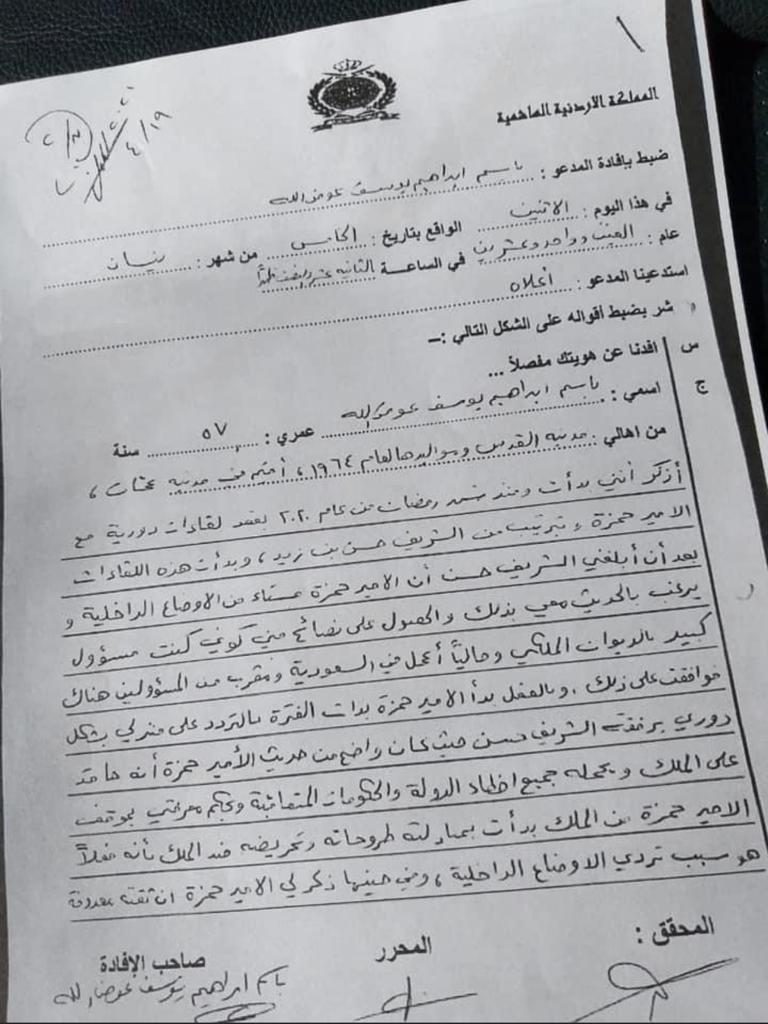 ١
المملكة الاردنية الهاشمية
٤/١٩
ضبط بإفادة المدعو : باسم ابراهيم يوسف عوض الله
في هذا اليوم : الاثنين الواقع بتاريخ : الخامس من شهر : نيسان
عام : الفين وواحد وعشرين في الساعة الثانية عشر والنصف ظهراً
استدعينا المدعو : أعلاه
شر بضبط أقواله على الشكل التالي :–
س افدنا عن هويتك مفصلاً ...
ج اسمي : باسم ابراهيم يوسف عوض الله عمري : ٥٧ سنة
من اهالي : مدينة القدس ومواليدها لعام ١٩٦٤ ، أقيم في مدينة عمان ،
أذكر أنني بدأت ومنذ شهر رمضان من عام ٢٠٢٠ بعقد لقاءات دورية مع
الامير حمزة وبترتيب من الشريف حسن بن زيد ، وبدأت هذه اللقاءات
بعد أن أبلغني الشريف حسن أن الامير حمزة مستاء من الاوضاع الداخلية و
يرغب بالحديث معي بذلك والحصول على نصائح مني كوني كنت مسؤول
كبير بالديوان الملكي وحالياً أعمل في السعودية ومقرب من المسؤولين هناك
فوافقت على ذلك ، وبالفعل بدأ الامير حمزة بذات الفترة بالتردد على منزلي بشكل
دوري برفقة الشريف حسن حيث كان واضح من حديث الأمير حمزة أنه حاقد
على الملك ويحمله جميع اخطاء الدولة والحكومات المتعاقبة وبحكم معرفتي بموقف
الامير حمزة من الملك بدأت بمبادلته طروحاته وتحريضه ضد الملك بأنه فعلاً
هو سبب تردي الاوضاع الداخلية ، وفي حينها ذكر لي الامير حمزة ان ثقته معدومة
المحقق : المحرر صاحب الإفادة
باسم ابراهيم يوسف عوض الله